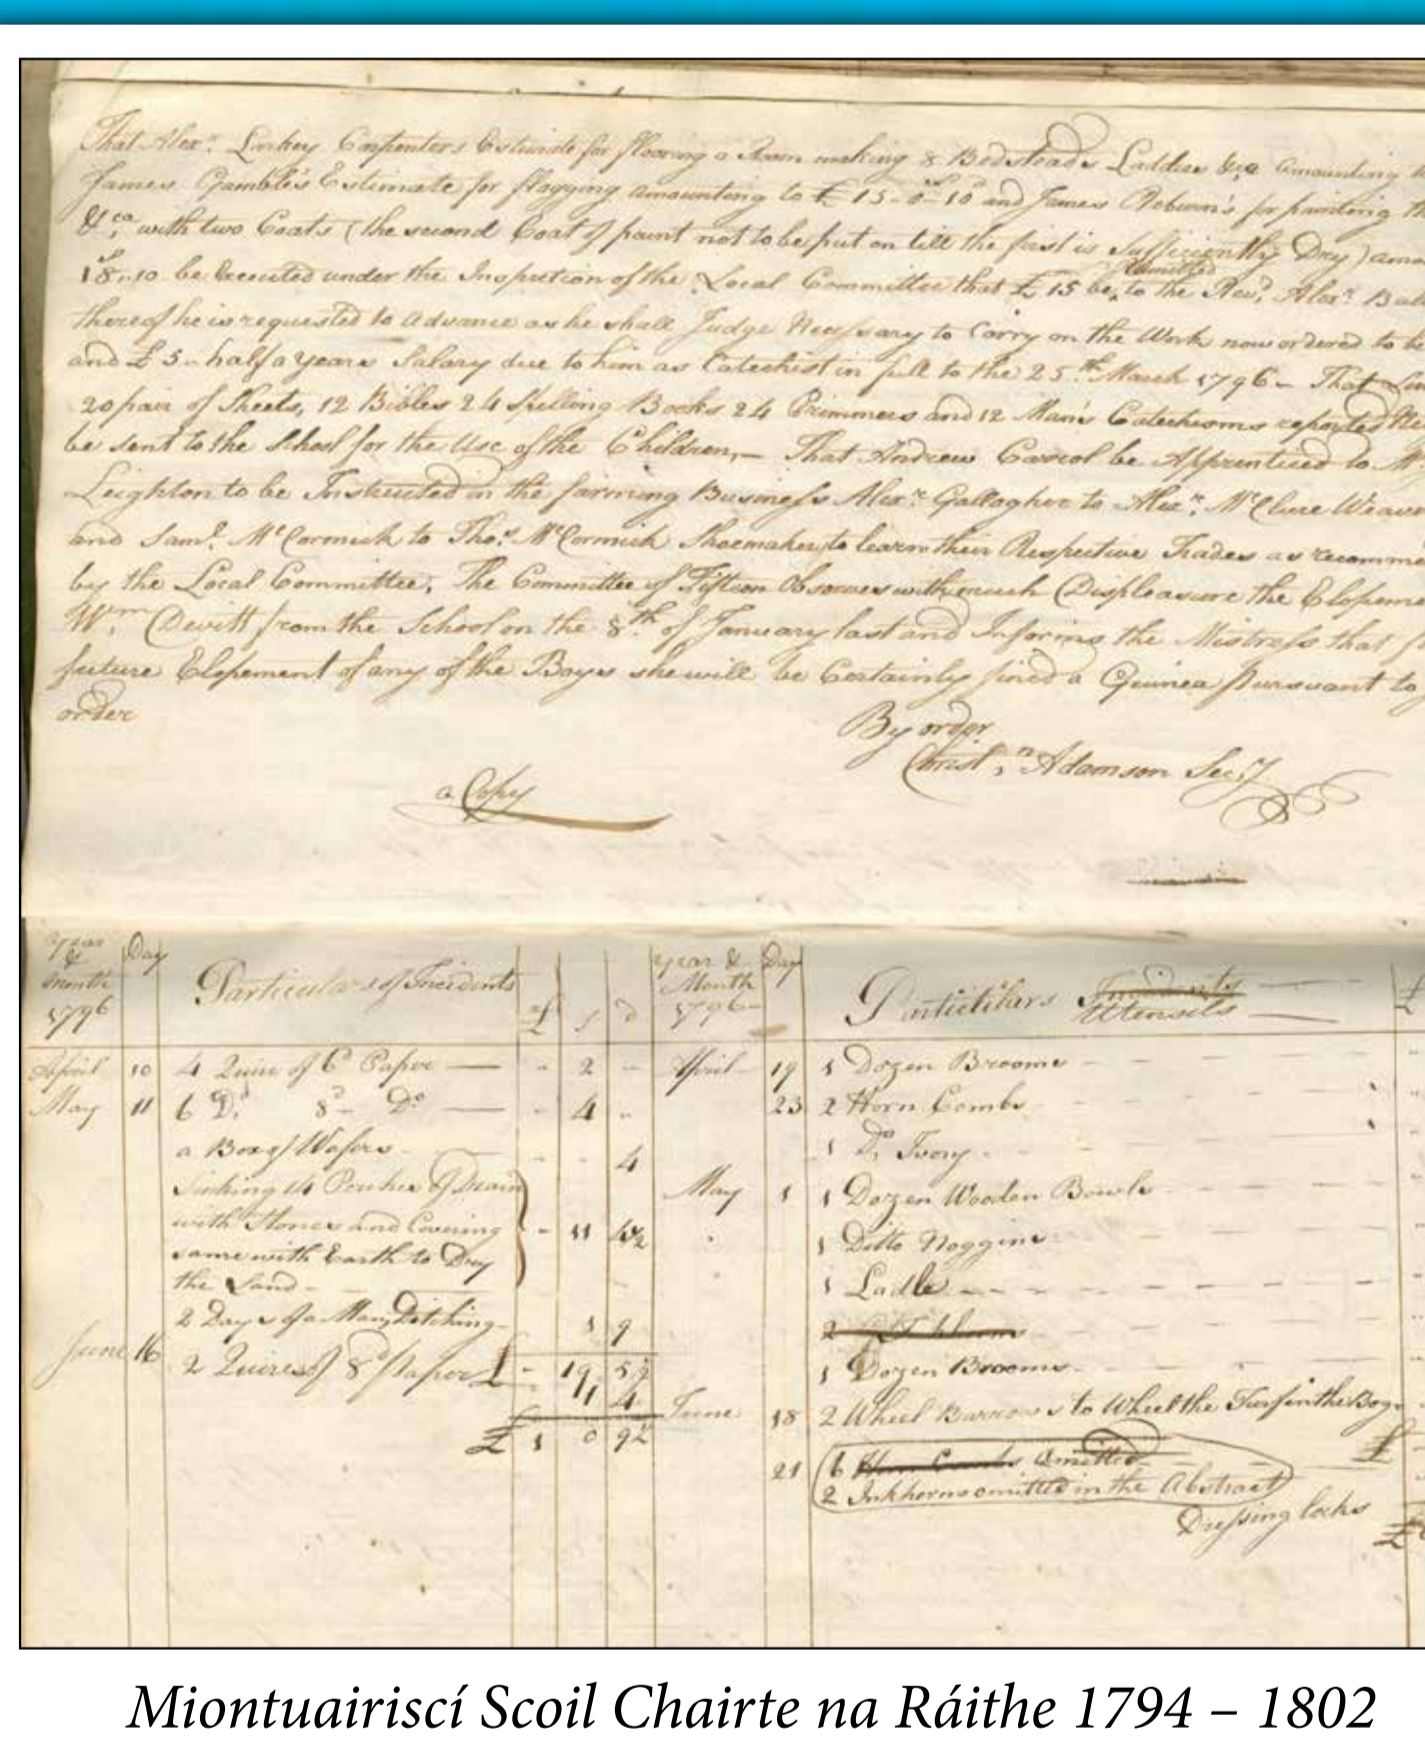 That Alexr. Lockey Carpenters Estimate for flooring a Room making 8 Bedsteads Ladder &ca amounting
James Gamble's Estimate for flagging amounting to £15-0-10 and James Roburn's for painting
&ca with two Coats (the second Coat of paint not to be put on till the first is Sufficiently Dry)
18..10 be Executed under the Inspection of the Local Committee that £15 be remitted to the Revd. Alexr.
thereof he is requested to advance as he shall Judge Necessary to Carry on the Work now ordered to be
and £5.. half a years Salary due to him as Catechist in full to the 25th March 1796 – That
20 pair of Sheets, 12 Bibles 24 Spelling Books 24 Primmers and 12 Mann's Catechisms reported
be sent to the School for the Use of the Children, – That Andrew Carrol be Apprenticed to
Leighton to be Instructed in the farming Business Alexr. Gallagher to Alexr. McClure
and Saml. McCormick to Thos. McCormick Shoemaker, to learn their Respective Trades as
by the Local Committee. The Committee of Fifteen Observes with much Displeasure the
Wm. Devitt from the School on the 8th of January last and Informs the Mistress that
future Elopement of any of the Boys she will be Certainly fined a Guinea pursuant to
order
By order
Christn. Adamson Secy
a Copy
Year & Month 1796 Day Particulars of Incidents £ s d
April 10 4 Quire of 6d Paper — - 2 -
May 11 6 Do. 8d- Do. — - 4 -
a Box of Wafers - - 4
Sinking 14 Perches of Drain
with Stones and Covering - 11 4½
same with Earth to Dry
the Land -
2 Days of a Man Ditching - 1 9
- 19 5½
June 16 2 Quires of 8d paper 1 4
£ 1 0 9½
Year & Month 1796- Day Particulars Incidents Utensils £
April 19 1 Dozen Brooms
23 2 Horn Combs
1 Do. Ivory
May 1 1 Dozen Wooden Bowls
1 Ditto Noggins
1 Ladle
1 Dozen Brooms
June 18 2 Wheel Barrows to Wheel the Turf in the Bog
21 6 Horn Combs Omitted
2 Inkhorns omitted in the Abstract
Dressing locks £
Miontuairiscí Scoil Chairte na Ráithe 1794 – 1802